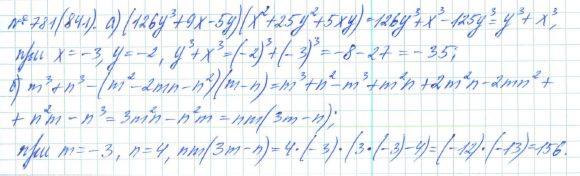 № 781(841). а) (126y³+9x-5y)(x²+25y²+5xy)=126y³+x³-125y³=y³+x³,
при x=-3, y=-2, y³+x³=(-2)³+(-3)³=-8-27=-35;
б) m³+n³-(m²-2mn-n²)(m-n)=m³+n²-m³+m²n+2m²n-2mn²+
+n²m-n³=3m²n-n²m=nm(3m-n);
при m=-3, n=4, nm(3m-n)=4·(-3)·(3·(-3)-4)=(-12)·(-13)=156.